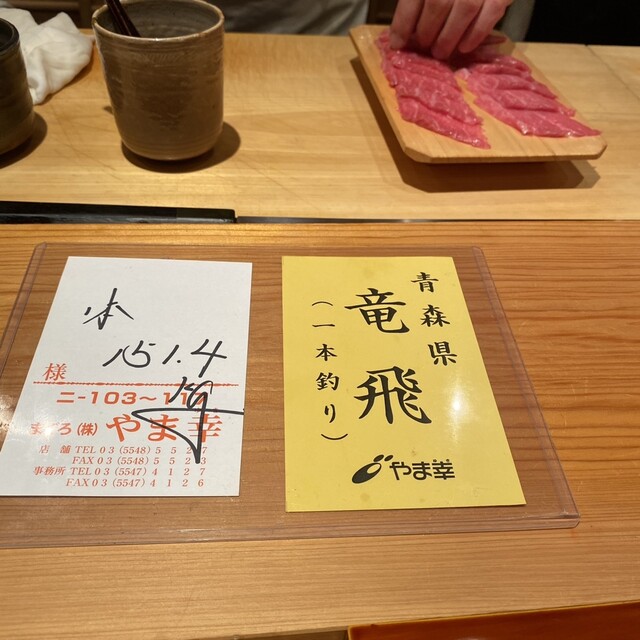 本
151.4
様
ニ-103~11
まぐろ(株) やま幸
店 舗 TEL 03 (5548) 5 5 2 7
FAX 03 (5548) 5 5 2
事務所 TEL 03 (5547) 4 1 2 7
FAX 03 (5547) 4 1 2 6
青森県
竜飛
(一本釣り)
やま幸